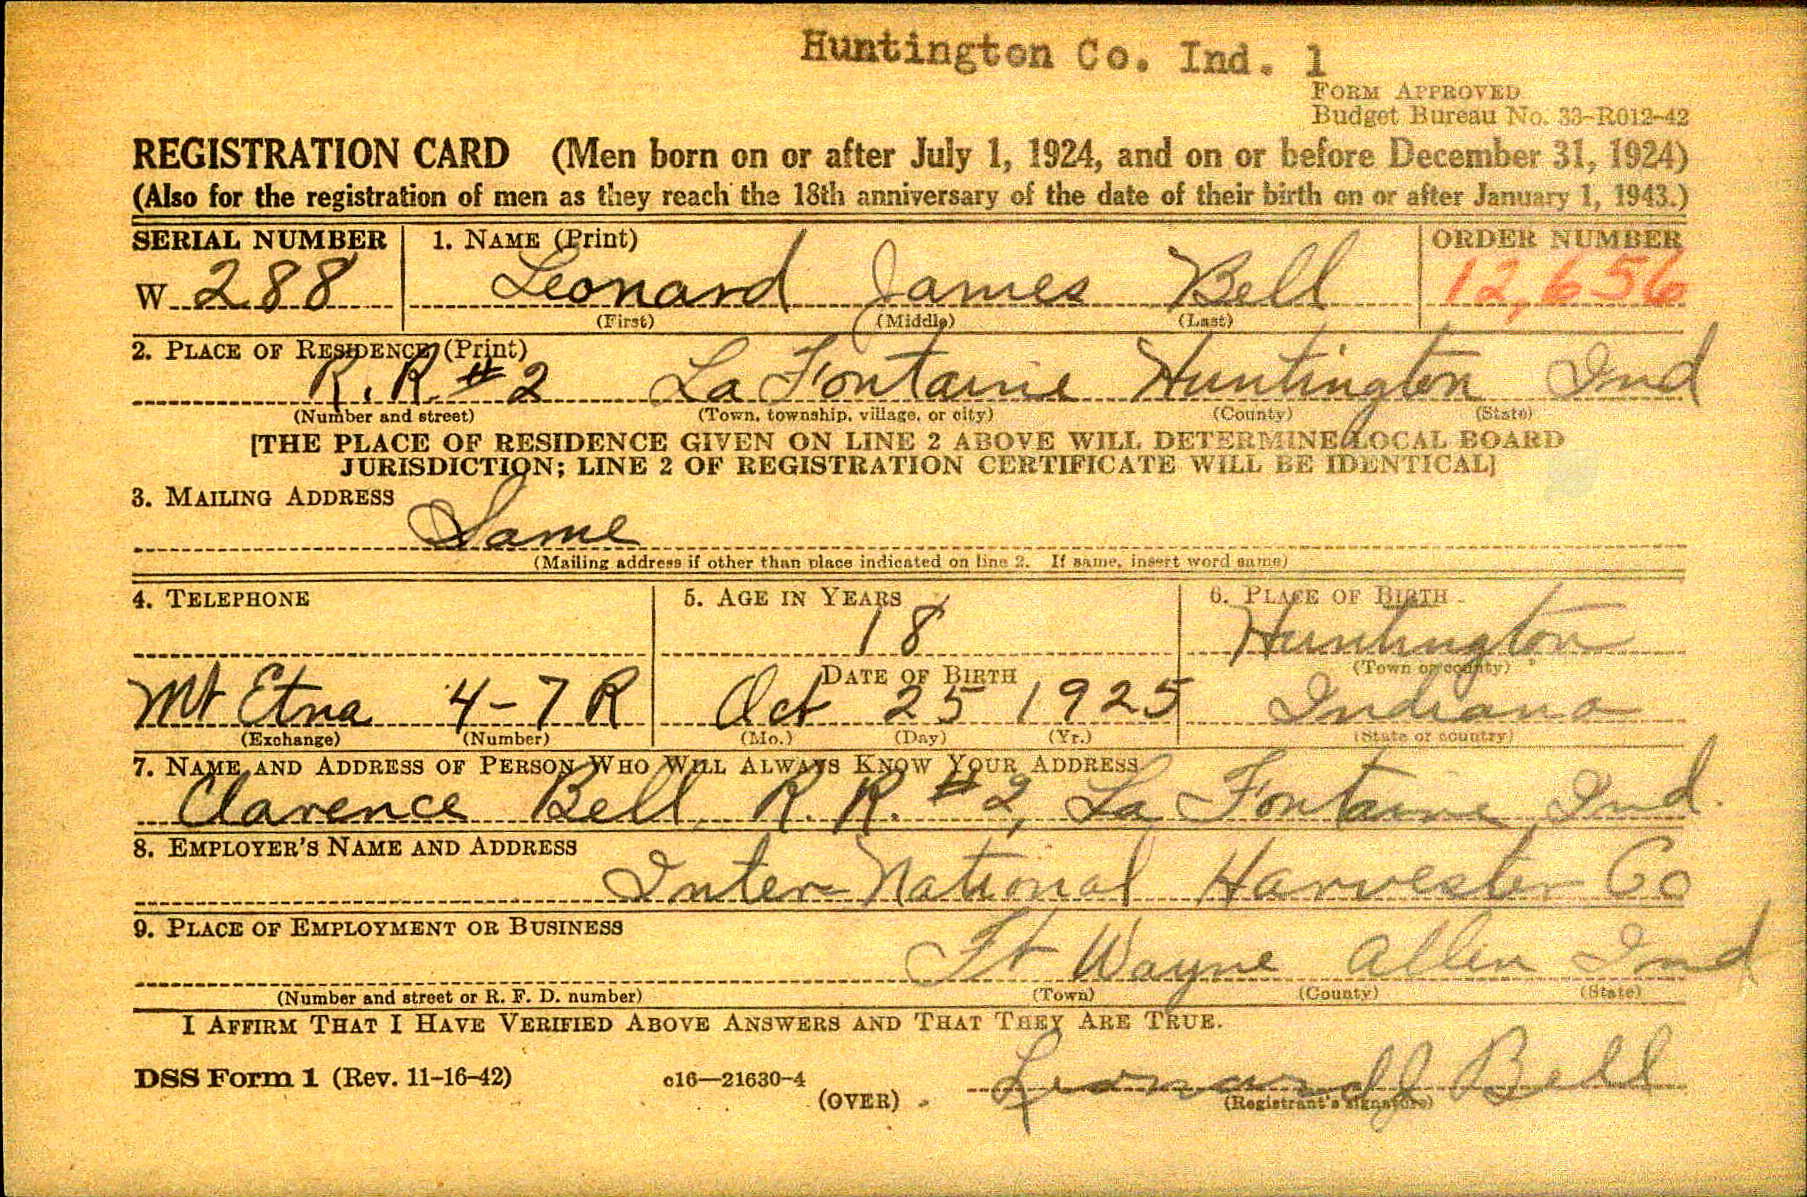 Huntington Co. Ind. 1
FORM APPROVED
Budget Bureau No. 33-R012-42
REGISTRATION CARD (Men born on or after July 1, 1924, and on or before December 31, 1924)
(Also for the registration of men as they reach the 18th anniversary of the date of their birth on or after January 1, 1943.)
SERIAL NUMBER 1. NAME (Print) ORDER NUMBER
W 288 Leonard James Bell 12,656
(First) (Middle) (Last)
2. PLACE OF RESIDENCE (Print)
R. R. # 2 La Fontaine Huntington Ind
(Number and street) (Town, township, village, or city) (County) (State)
[THE PLACE OF RESIDENCE GIVEN ON LINE 2 ABOVE WILL DETERMINE LOCAL BOARD
JURISDICTION; LINE 2 OF REGISTRATION CERTIFICATE WILL BE IDENTICAL]
3. MAILING ADDRESS
Same
(Mailing address if other than place indicated on line 2. If same, insert word same)
4. TELEPHONE 5. AGE IN YEARS 6. PLACE OF BIRTH
18 Huntington
DATE OF BIRTH (Town or county)
Mt Etna 4-7 R Oct 25 1925 Indiana
(Exchange) (Number) (Mo.) (Day) (Yr.) (State or country)
7. NAME AND ADDRESS OF PERSON WHO WILL ALWAYS KNOW YOUR ADDRESS
Clarence Bell, R. R. # 2, La Fontaine, Ind.
8. EMPLOYER'S NAME AND ADDRESS
Inter-National Harvester Co
9. PLACE OF EMPLOYMENT OR BUSINESS
Ft Wayne Allen Ind
(Number and street or R. F. D. number) (Town) (County) (State)
I AFFIRM THAT I HAVE VERIFIED ABOVE ANSWERS AND THAT THEY ARE TRUE.
DSS Form 1 (Rev. 11-16-42) c16—21630-4 (OVER) Leonard J Bell
(Registrant's signature)